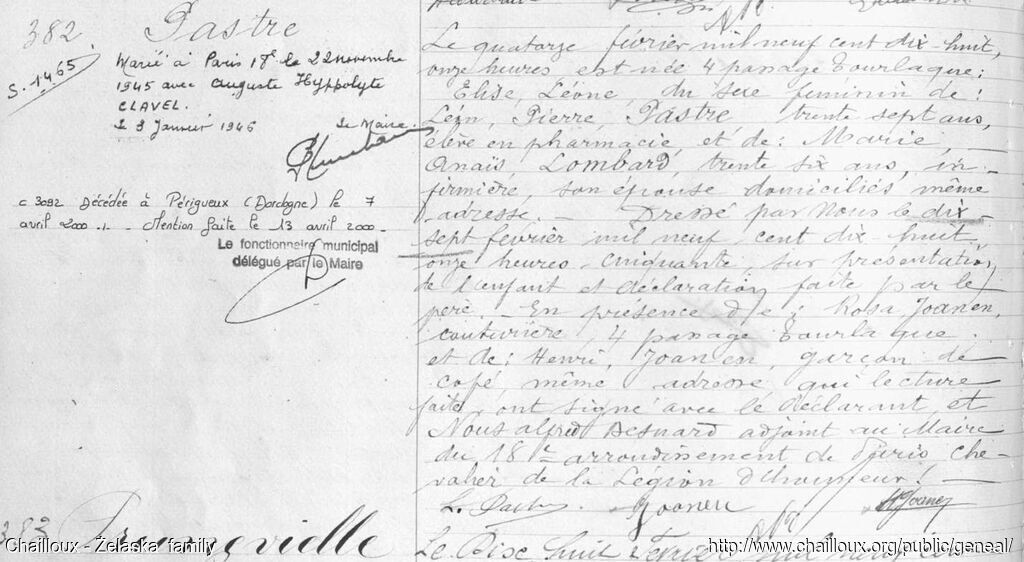 382. Pastre
S. 1465
Marié à Paris 17e le 22 novembre
1945 avec Auguste Hyppolyte
CLAVEL.
Le 9 Janvier 1946 Le Maire.
C 3092 Décédée à Périgueux (Dordogne) le 7
avril 2000 ./. - Mention faite le 13 avril 2000 -
Le fonctionnaire municipal
délégué par le Maire
Le quatorze février mil neuf cent dix-huit,
onze heures est née 4 passage Tourlaque:
Elise, Léone, du sexe féminin de:
Léon, Pierre, Pastre trente sept ans,
élève en pharmacie, et de: Marie,
Anaïs, Lombard, trente six ans, in-
firmière, son épouse domiciliés même
adresse. - Dressé par Nous le dix-
sept février mil neuf cent dix-huit
onze heures cinquante sur présentation
de l'enfant et déclaration faite par le
père. - En présence de: Rosa Joanen,
couturière, 4 passage Tourlaque
et de: Henri, Joanen, garçon de
café, même adresse qui lecture
faite, ont signé avec le déclarant et
Nous Alfred Besnard adjoint au Maire
du 18e arrondissement de Paris, Che-
valier de la Légion d'honneur. -
L. Pastre Joanen H Joanen
383
Le Dix huit Février
Chailloux - Zelaska family
http://www.chailloux.org/public/geneal/